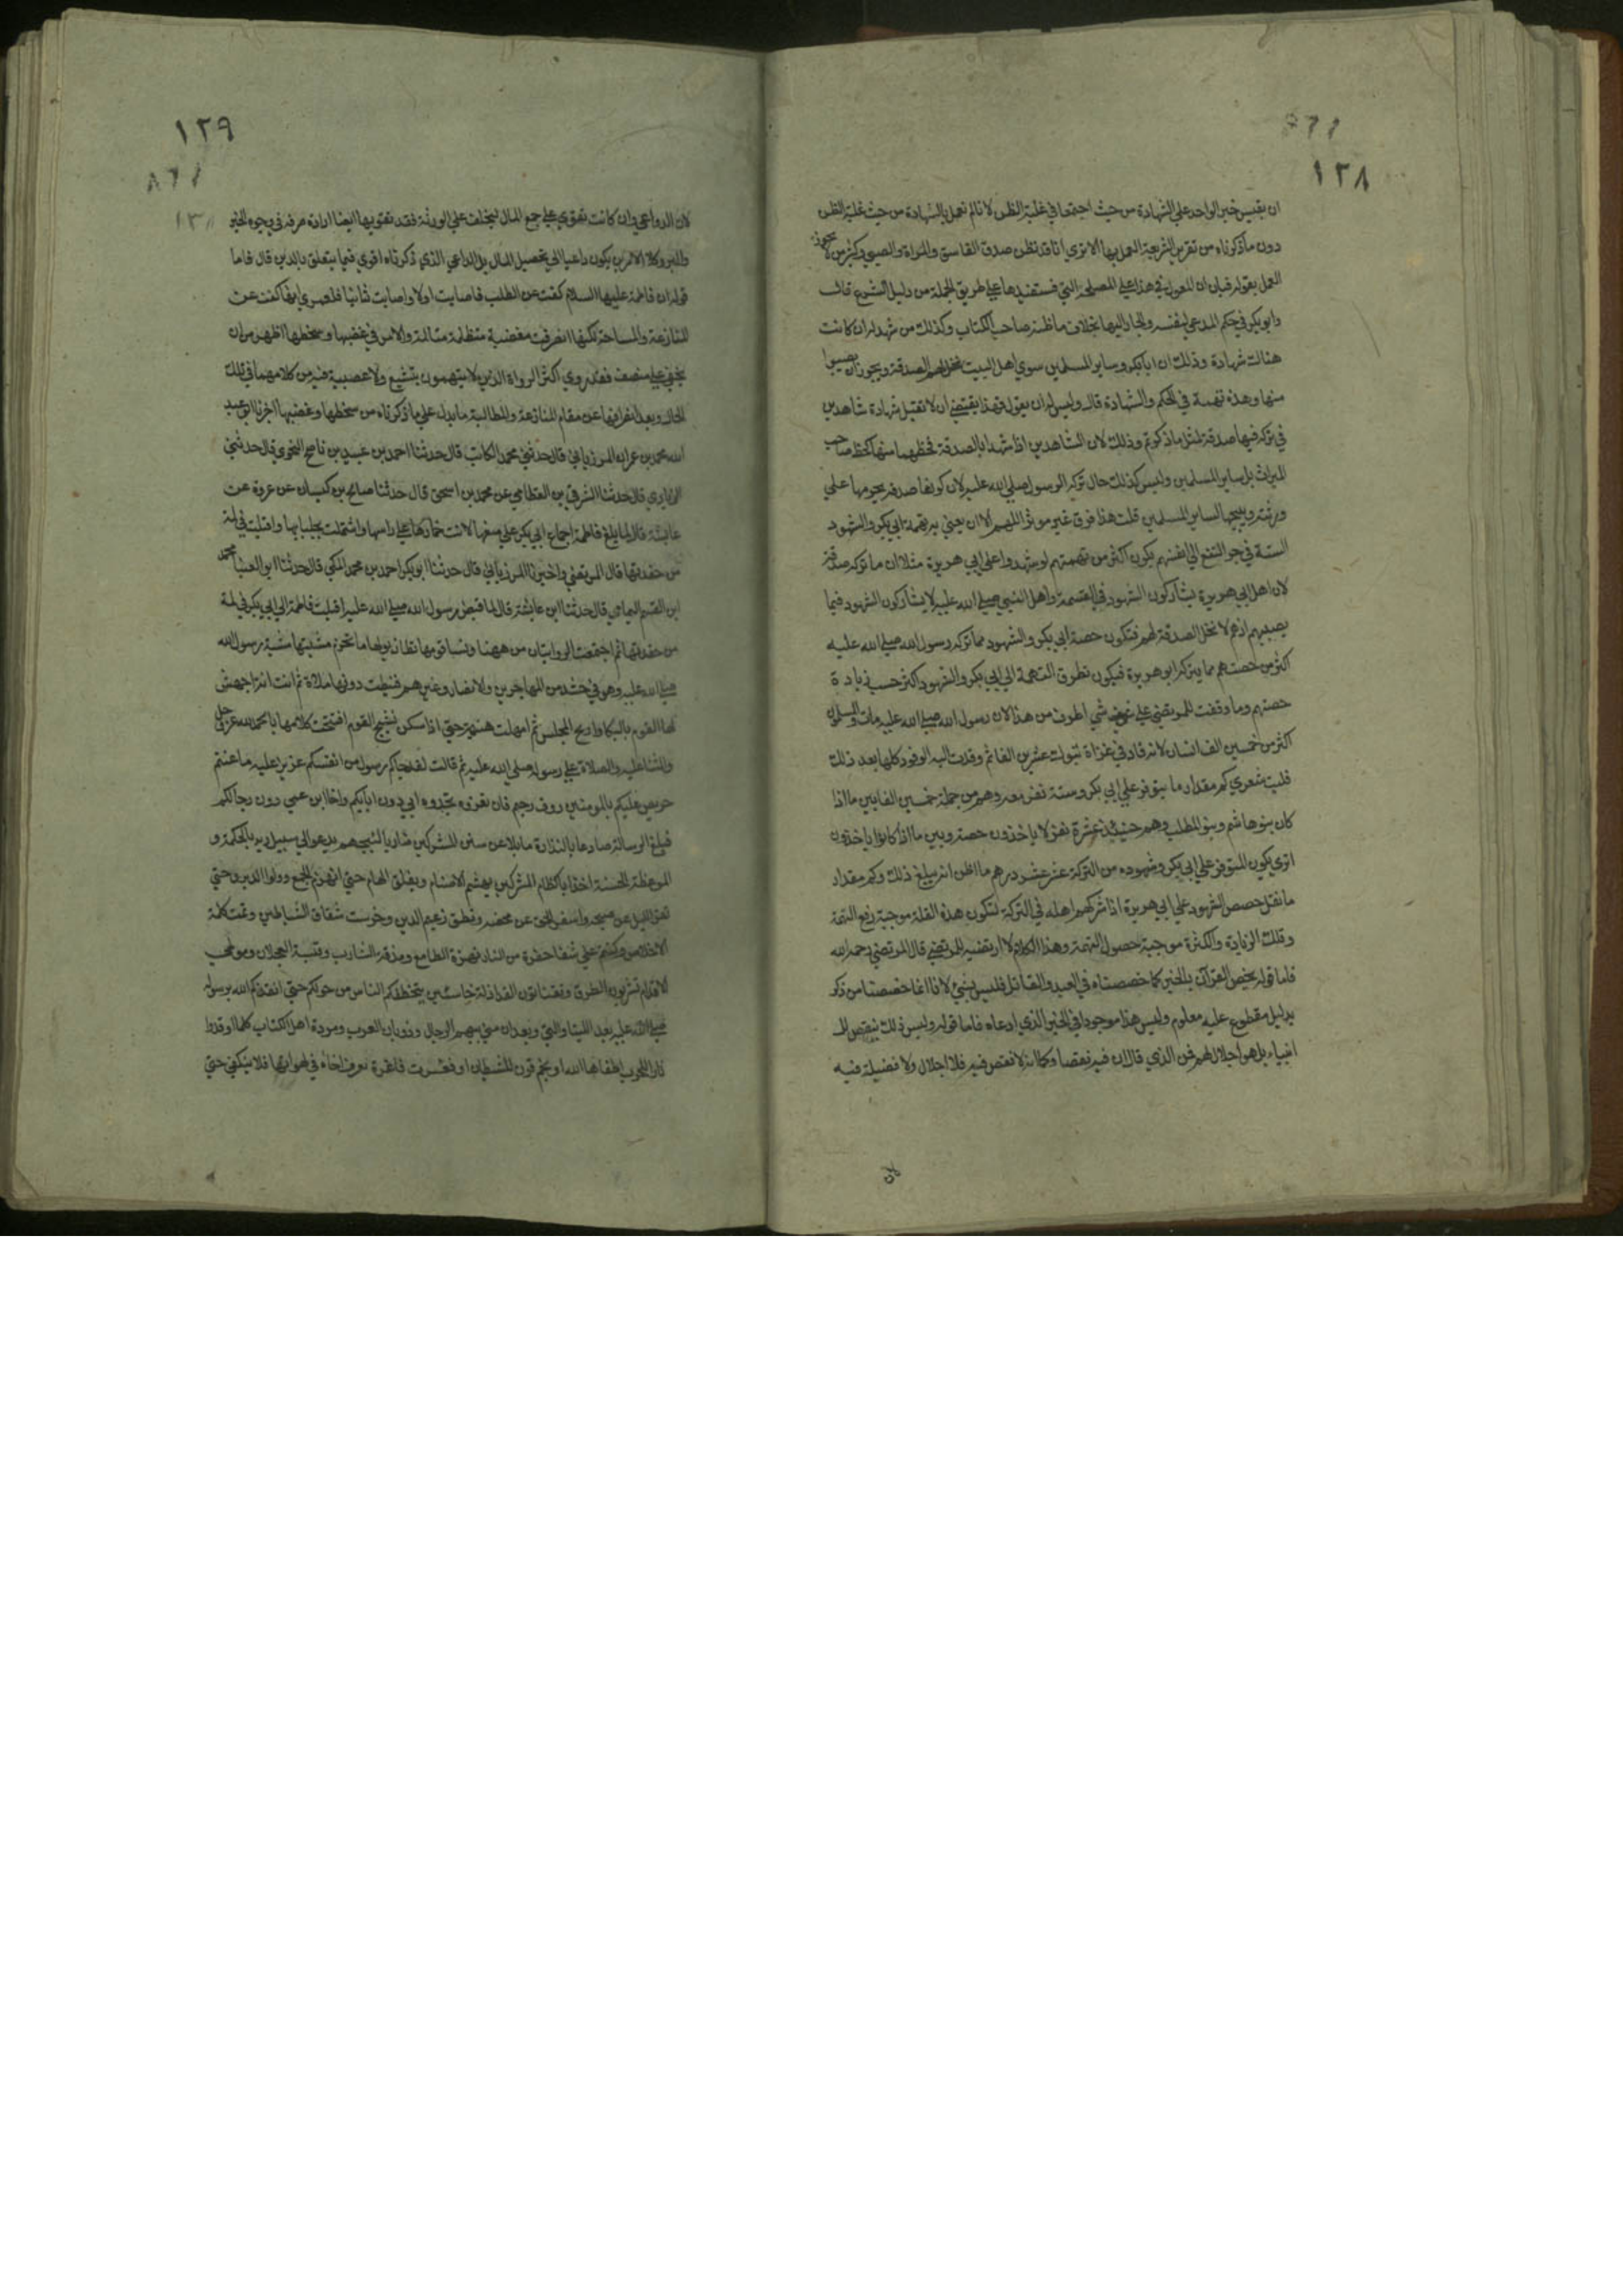 ١٢٨
ان يقيس خبر الواحد على الشهادة من حيث اجتمعا في غلبة الظن لانا لم نعمل بالشهادة من حيث غلبة الظن
دون ما ذكرناه من تقرير الشريعة العمل بها الا تري انا قد نظن صدق الفاسق والمراة والصبي وكثير من لا يجوز
العمل بقوله فبان ان المعول في هذا علي المصلحة التي نستفيدها علي طريق الجملة من دليل الشرع قال
وابو بكر في حكم المدعي لنفسه والجار اليها بخلاف ما ظنه صاحب الكتاب وكذلك من شهد له ان كانت
هناك شهادة وذلك ان ابا بكر وساير المسلمين سوي اهل البيت تحل لهم الصدقة ويجوز ان يصيبوا
منها وهذه تهمة في الحكم والشهادة قال وليس له ان يقول فهذا يقتضي ان لا تقبل شهادة شاهدين
في تركه فيها صدقة لمثل ما ذكرتم وذلك لان الشاهدين اذا شهدا بالصدقة فحظهما منها كحظ صاحب
الميراث بل ساير المسلمين وليس كذلك حال تركه الرسول صلي الله عليه لان كونها صدقه يحرمها علي
ورثته ويبيحها لساير المسلمين قلت هذا فرق غير موثر اللهم الا ان يعني به تهمة ابي بكر والشهود
الستة في جر النفع الي انفسهم يكون اكثر من تهمتهم لو شهدوا علي ابي هريرة مثلا ان ما تركه صدقة
لان اهل ابي هريرة يشاركون الشهود في القسمة واهل النبي صلي الله عليه لا يشاركون الشهود فيما
يصيبهم اذ هم لا تحل الصدقة لهم فتكون حصة ابي بكر والشهود مما تركه رسول الله صلي الله عليه
اكثر من حصتهم مما يتركه ابو هريرة فيكون تطرق التهمة الي ابي بكر والشهود اكثر حسب زيادة
حصتهم وما وقفت للمرتضي علي شي اطرف من هذا لان رسول الله صلي الله عليه مات والمسلمون
اكثر من خمسين الف انسان لانه قاد في غزاة تبوك عشرين الفا ثم وفدت اليه الوفود كلها بعد ذلك
فليت شعري كم مقدار ما يتوفر علي ابي بكر وستة نفر معه وهم من جملة خمسين الفا بين ما اذا
كان بنو هاشم وبنو المطلب وهم حينئذ عشرة نفر لا ياخذون حصته وبين ما اذا كانوا ياخذون
اتري يكون المتوفر علي ابي بكر وشهوده من التركة عشر عشر درهم ما اظن انه يبلغ ذلك وكم مقدار
ما تقل حصص الشهود علي ابي هريرة اذا شركهم اهله في التركة لتكون هذه القلة موجبة رفع التهمة
وتلك الزيادة والكثرة موجبة حصول التهمة وهذا الكلام لا ارتضيه للمرتضي قال المرتضي رحمه الله
فاما قوله يخص القرآن بالخبر كما خصصناه في العبد والقاتل فليس بشيء لانا انما خصصنا من ذكر
بدليل مقطوع عليه معلوم وليس هذا موجودا في الخبر الذي ادعاه فاما قوله وليس ذلك بنقص الا
انبياء بل هو اجلال لهم فمن الذي قال ان فيه نقصا وكما انه لا نقص فيه فلا اجلال ولا فضيلة فيه
١٢٩
لان الدواعي وان كانت تقوي علي جمع المال ليخلف علي الورثة فقد تقويها ايضا ارادة صرفه في وجوه الخير
والبر وكلا الامرين يكون داعيا الي تحصيل المال بل الداعي الذي ذكرناه اقوي فيما يتعلق بالدين قال فاما
قوله ان فاطمة عليها السلام كفت عن الطلب فاصابت اولا واصابت ثانيا فلعمري انها كفت عن
المنازعة والمساحة لكنها انصرفت مغضبة متظلمة متالمة والامر في غضبها وسخطها اظهر من ان
يخفي علي منصف فقد روي اكثر الرواة الذين لا يتهمون بتشيع ولا عصبية فيه من كلامهما في تلك
الحال وبعد انصرافها عن مقام المنازعة والمطالبة ما يدل علي ما ذكرناه من سخطها وغضبها اخبرنا ابو عبيد
الله محمد بن عمران المرزباني قال حدثني محمد الكاتب قال حدثنا احمد بن عبيد بن ناصح النحوي قال حدثني
الزيادي قال حدثنا الشرقي بن القطامي عن محمد بن اسحق قال حدثنا صالح بن كيسان عن عروة عن
عايشة قال لما بلغ فاطمة اجماع ابي بكر علي منعها لاثت خمارها علي راسها واشتملت بجلبابها واقبلت في لمة
من حفدتها قال المرتضي واخبرنا المرزباني قال حدثنا ابو بكر احمد بن محمد المكي قال حدثنا ابو العينا محمد
ابن القسم اليمامي قال حدثنا ابن عايشة قال لما قبض رسول الله صلي الله عليه اقبلت فاطمة الي ابي بكر في لمة
من حفدتها ثم اجتمعت الروايتان من ههنا ونساقومها تطا ذيولها ما تخرم مشيتها مشية رسول الله
صلي الله عليه وهو في حشد من المهاجرين والانصار وغيرهم فنيطت دونها ملاة ثم انت انة اجهش
لها القوم بالبكا وارتج المجلس ثم امهلت هنيهة حتي اذا سكن نشيج القوم افتتحت كلامها بالحمد لله عز وجل
والثنا عليه والصلاة علي رسوله صلي الله عليه ثم قالت لقد جاكم رسول من انفسكم عزيز عليه ما عنتم
حريص عليكم بالمومنين روف رحيم فان تعزوه تجدوه ابي دون ابايكم واخا ابن عمي دون رجالكم
فبلغ الرسالة صادعا بالنذارة مايلا عن سنن المشركين ضاربا لثبجهم يدعو الي سبيل ربه بالحكمة و
الموعظة الحسنة اخذا باكظام المشركين يهشم الاصنام ويفلق الهام حتي انهزم الجمع وولوا الدبر وحتي
تفري الليل عن صبحه واسفر الحق عن محضه ونطق زعيم الدين وخرست شقاق الشياطين وتمت كلمة
الاخلاص وكنتم علي شفا حفرة من النار نهزة الطامع ومذقة الشارب وقبسة العجلان وموطي
الاقدام تشربون الطرق وتقتاتون القد اذلة خاسئين يتخطفكم الناس من حولكم حتي انقذكم الله برسوله
صلي الله عليه بعد اللتيا والتي وبعد ان مني ببهم الرجال وذوبان العرب ومردة اهل الكتاب كلما اوقدوا
نارا للحرب اطفاها الله او نجم قرن للشيطان او فغرت فاغرة قذف اخاه في لهواتها فلا ينكفي حتي